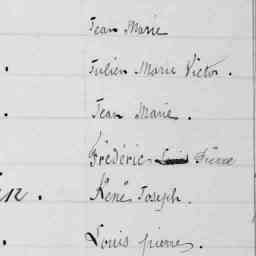 Jean Marie
Julien Marie Victor.
Jean Marie.
Frédéric Pierre
René Joseph.
Louis pierre.